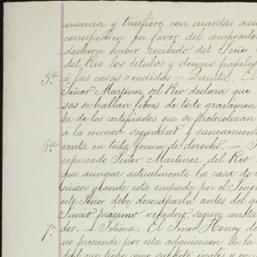 nuncia y trasfiere con cuantas acc
corresponden en favor del comprador
declara haber recibido del Señor
del Rio los titulos y demas papeles
5.a á las casas vendidas = Quinta. El
Señor Martinez del Rio declara que
sas se hallan libres de todo gravamen
ta de los certificados que se protocolizan
á la eviccion seguridad y saneamiento
6.a venta en toda forma de derecho. =
expresado Señor Martinez del Rio
que aunque actualmente la casa de
cision grande está ocupada por el Señor
este Señor debe desocuparla antes del
Junio proximo venidero, segun consta
7.a dor. = Setima. El Señor Henry de
no procede por esta adquisicion de la